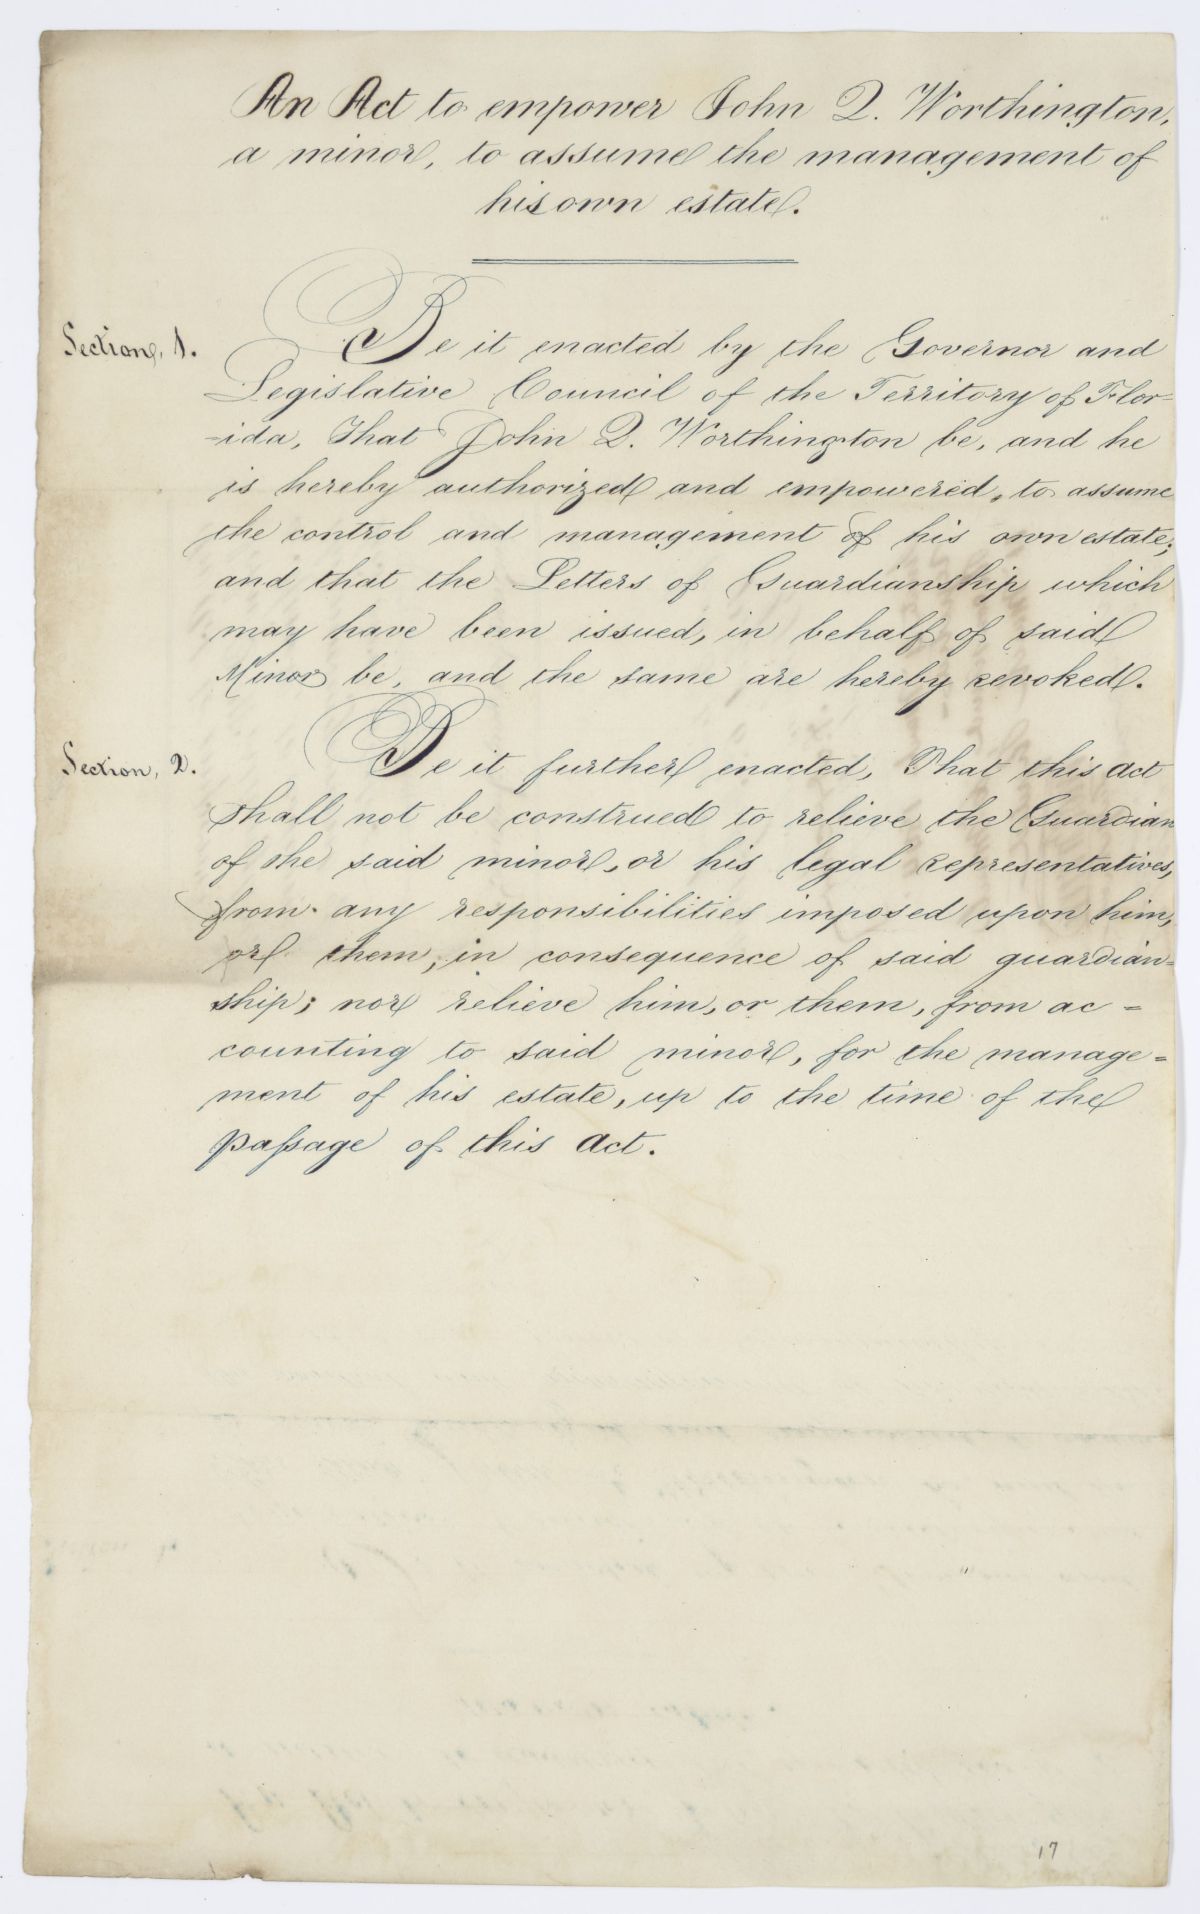 An Act to empower John Q. Worthington,
a minor, to assume the management of
his own estate.
Section, 1.
Be it enacted by the Governor and
Legislative Council of the Territory of Flor-
-ida, That John Q. Worthington be, and he
is hereby authorized and empowered, to assume
the control and management of his own estate;
and that the Letters of Guardianship which
may have been issued, in behalf of said
Minor be, and the same are hereby revoked.
Section, 2.
Be it further enacted, That this act
shall not be construed to relieve the Guardian
of the said minor, or his legal representatives,
from any responsibilities imposed upon him,
or them, in consequence of said guardian=
ship; nor relieve him, or them, from ac =
counting to said minor, for the manage=
ment of his estate, up to the time of the
passage of this act.
17